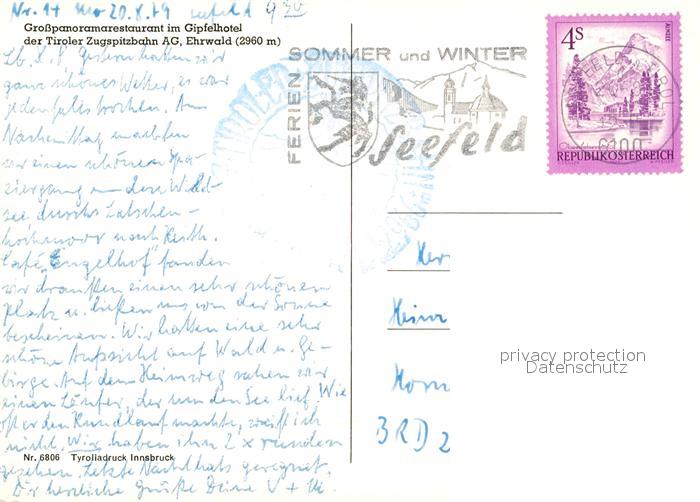 Nr. 14 Mo 20.8.79 Seefeld 9 30
Großpanoramarestaurant im Gipfelhotel
der Tiroler Zugspitzbahn AG, Ehrwald (2960 m)
Gestern hatten wir
ganz schönes Wetter, es war
jedenfalls trocken. Am
Nachmittag machten
wir einen schönen Spa-
ziergang an den Wild-
see durchs Latschen-
hochmoor nach
Café "Engelhof" fanden
wir draußen einen sehr schönen
Platz u. ließen uns von der Sonne
bescheinen. Wir hatten eine sehr
schöne Aussicht auf Wald u. Ge-
birge. Auf dem Heimweg sahen wir
einen Läufer, der um den See lief. Wie
oft er den Rundlauf machte, weiß ich
nicht. Wir haben ihn 2 x rundum
gesehen. Letzte Nacht hats geregnet.
Dir herzliche Grüße Deine V + M.
Nr. 6806 Tyroliadruck Innsbruck
FERIEN
SOMMER und WINTER
Seefeld
4S
ALMSEE
6100
REPUBLIK ÖSTERREICH
Her
Heinr
Horn
BRD 2
privacy protection
Datenschutz